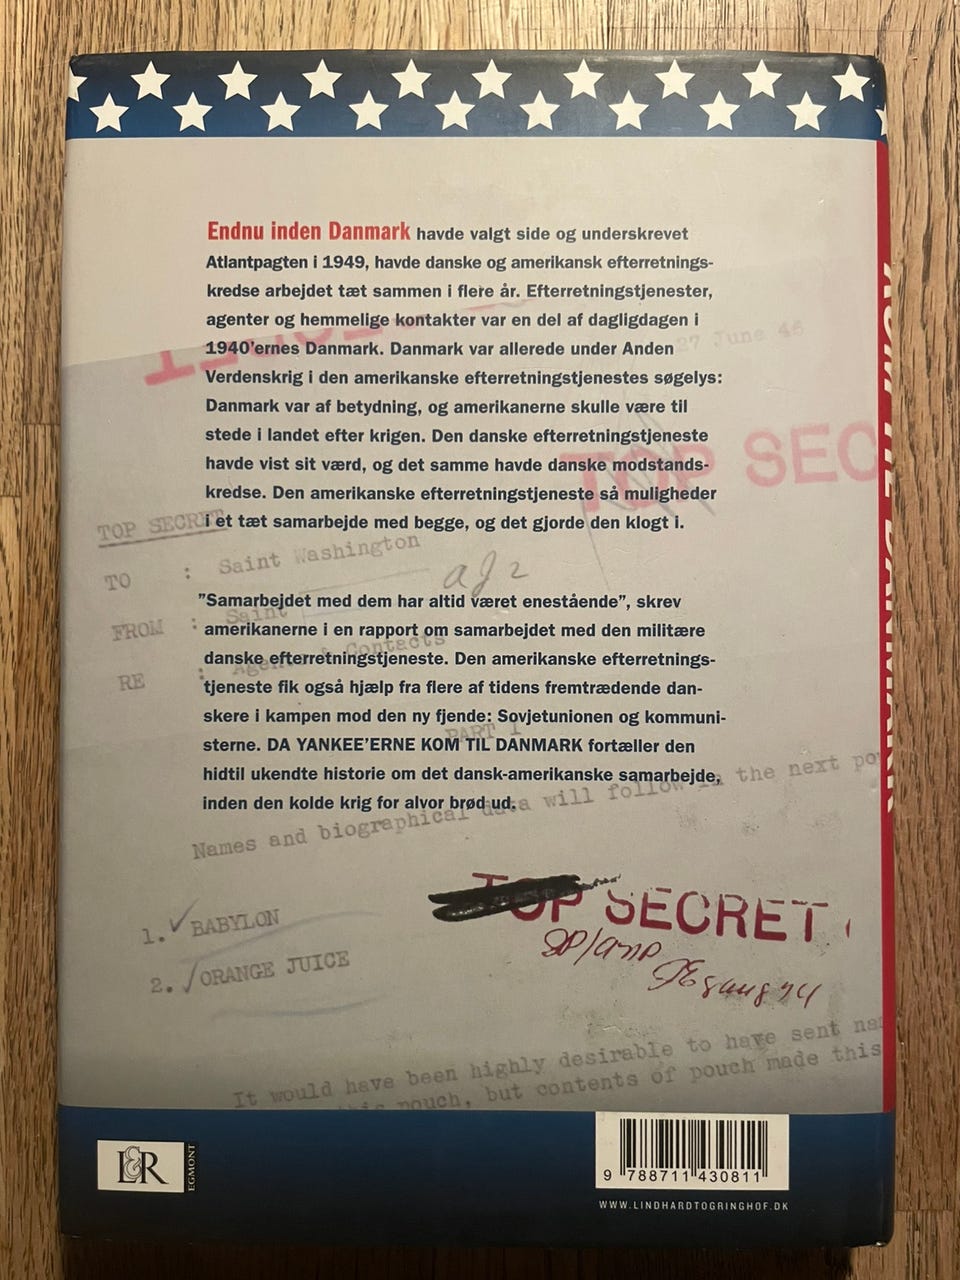 Endnu inden Danmark havde valgt side og underskrevet
Atlantpagten i 1949, havde danske og amerikansk efterretnings-
kredse arbejdet tæt sammen i flere år. Efterretningstjenester,
agenter og hemmelige kontakter var en del af dagligdagen i
1940'ernes Danmark. Danmark var allerede under Anden
Verdenskrig i den amerikanske efterretningstjenestes søgelys:
Danmark var af betydning, og amerikanerne skulle være til
stede i landet efter krigen. Den danske efterretningstjeneste
havde vist sit værd, og det samme havde danske modstands-
kredse. Den amerikanske efterretningstjeneste så muligheder
i et tæt samarbejde med begge, og det gjorde den klogt i.
27 June 46
TOP SEC
TOP SECRET
TO : Saint Washington
FROM : Saint
RE : Agents & Contacts
PART I
"Samarbejdet med dem har altid været enestående", skrev
amerikanerne i en rapport om samarbejdet med den militære
danske efterretningstjeneste. Den amerikanske efterretnings-
tjeneste fik også hjælp fra flere af tidens fremtrædende dan-
skere i kampen mod den ny fjende: Sovjetunionen og kommuni-
sterne. DA YANKEE'ERNE KOM TIL DANMARK fortæller den
hidtil ukendte historie om det dansk-amerikanske samarbejde,
inden den kolde krig for alvor brød ud.
Names and biographical data will follow in the next
TOP SECRET
1. BABYLON
2. ORANGE JUICE
It would have been highly desirable to have sent
this pouch, but contents of pouch made this
L&R
EGMONT
9 788711 430811
WWW.LINDHARDTOGRINGHOF.DK